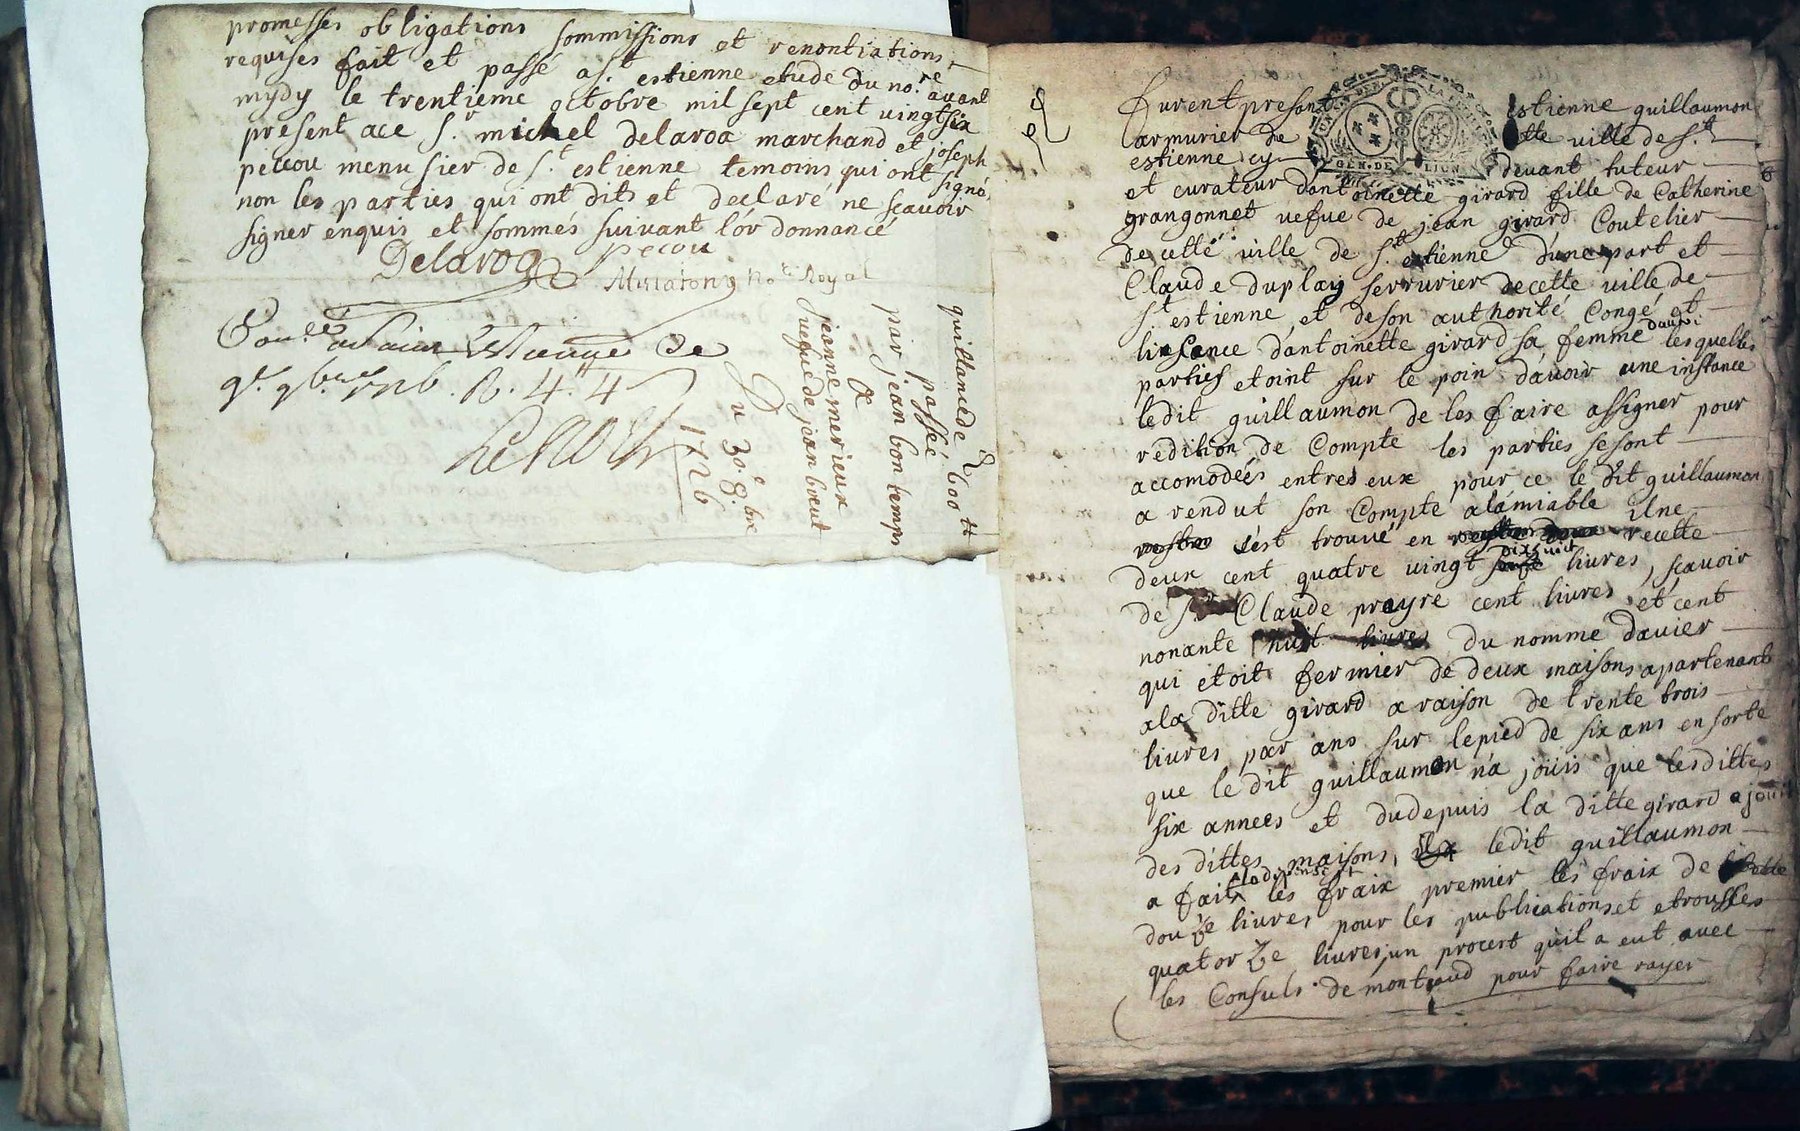 promesses obligations sommissions et renontiations
requises fait et passé a s.t estienne etude du no.re avant
mydy le trentieme octobre mil sept cent vingt six
present ace s.r michel delaroa marchand et joseph
peccou menusier de s.t estienne temoins qui ont signé
non les parties qui ont dit et declaré ne scavoir
signer enquis et sommés suivant l'ordonnance
Delaroa peccou
no.re Royal
4.# 4
quittance de 600 tt
passée
par jean bontemps
a
jeanne merieux
veuve de jean breut
du 30.e 8.bre
1726
Furent presents estienne guillaumon
armurier de cette ville de s.t
estienne cy devant tuteur
et curateur dantoinette girard fille de Catherine
grangonnet vefue de jean girard Coutelier
de cette ville de s.t estienne d'une part et
Claude duplay serrurier decette ville de
s.t estienne et deson authorité Congé et
lissance dantoinette girard sa femme dautre lesquelles
parties etoint sur le poin d'avoir une instance
ledit guillaumon de les faire assigner pour
redition de Compte les parties sesont
accomodées entres eux pour ce le dit guillaumon
a rendut son Compte alámiable il ne
s'est trouvé en recette
deux cent quatre vingt dix huit livres, scavoir
de s.r Claude preyre cent livres et cent
nonante huit livres du nomme davier
qui etoit fermier de deux maisons apartenant
ala ditte girard a raison de trente trois
livres par ans sur lepied de six ans en sorte
que le dit guillaumon n'a joüis que lesdittes
six annees et dudepuis la ditte girard a jouit
des dittes maisons, ledit guillaumon
a fait les fraix premier les fraix de
douze livres pour les publications et etrousses
quatorze livres, un procest qu'il a eut avec
les Consuls de montaud pour faire rayer